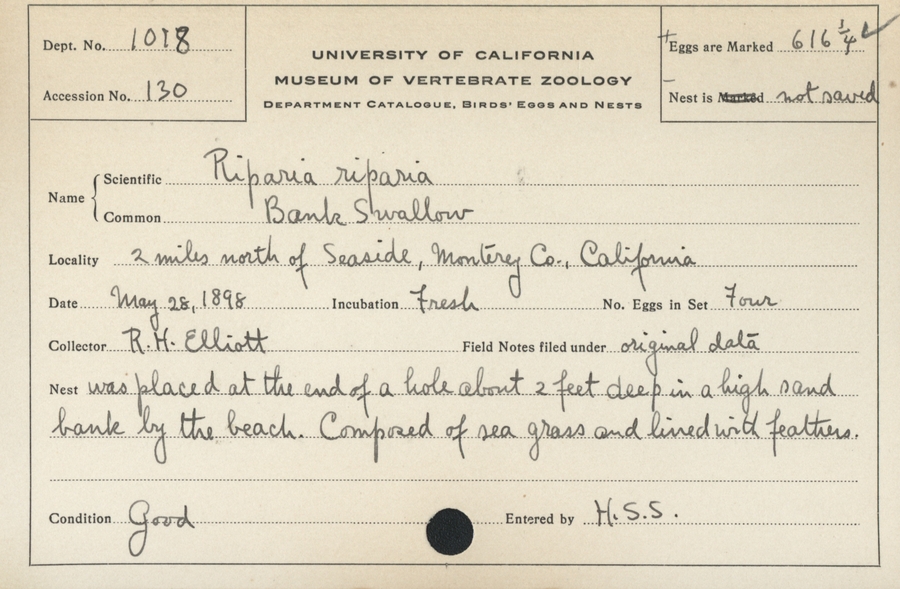 Dept. No. 1018
Accession No. 130
UNIVERSITY OF CALIFORNIA
MUSEUM OF VERTEBRATE ZOOLOGY
DEPARTMENT CATALOGUE, BIRDS' EGGS AND NESTS
Eggs are Marked 616 1/4
Nest is Marked not saved
Name
Scientific Riparia riparia
Common Bank Swallow
Locality 2 miles north of Seaside, Monterey Co., California
Date May 28, 1898 Incubation Fresh No. Eggs in Set Four
Collector R.H. Elliott Field Notes filed under original data
Nest was placed at the end of a hole about 2 feet deep in a high sand
bank by the beach. Composed of sea grass and lined with feathers.
Condition Good Entered by H.S.S.